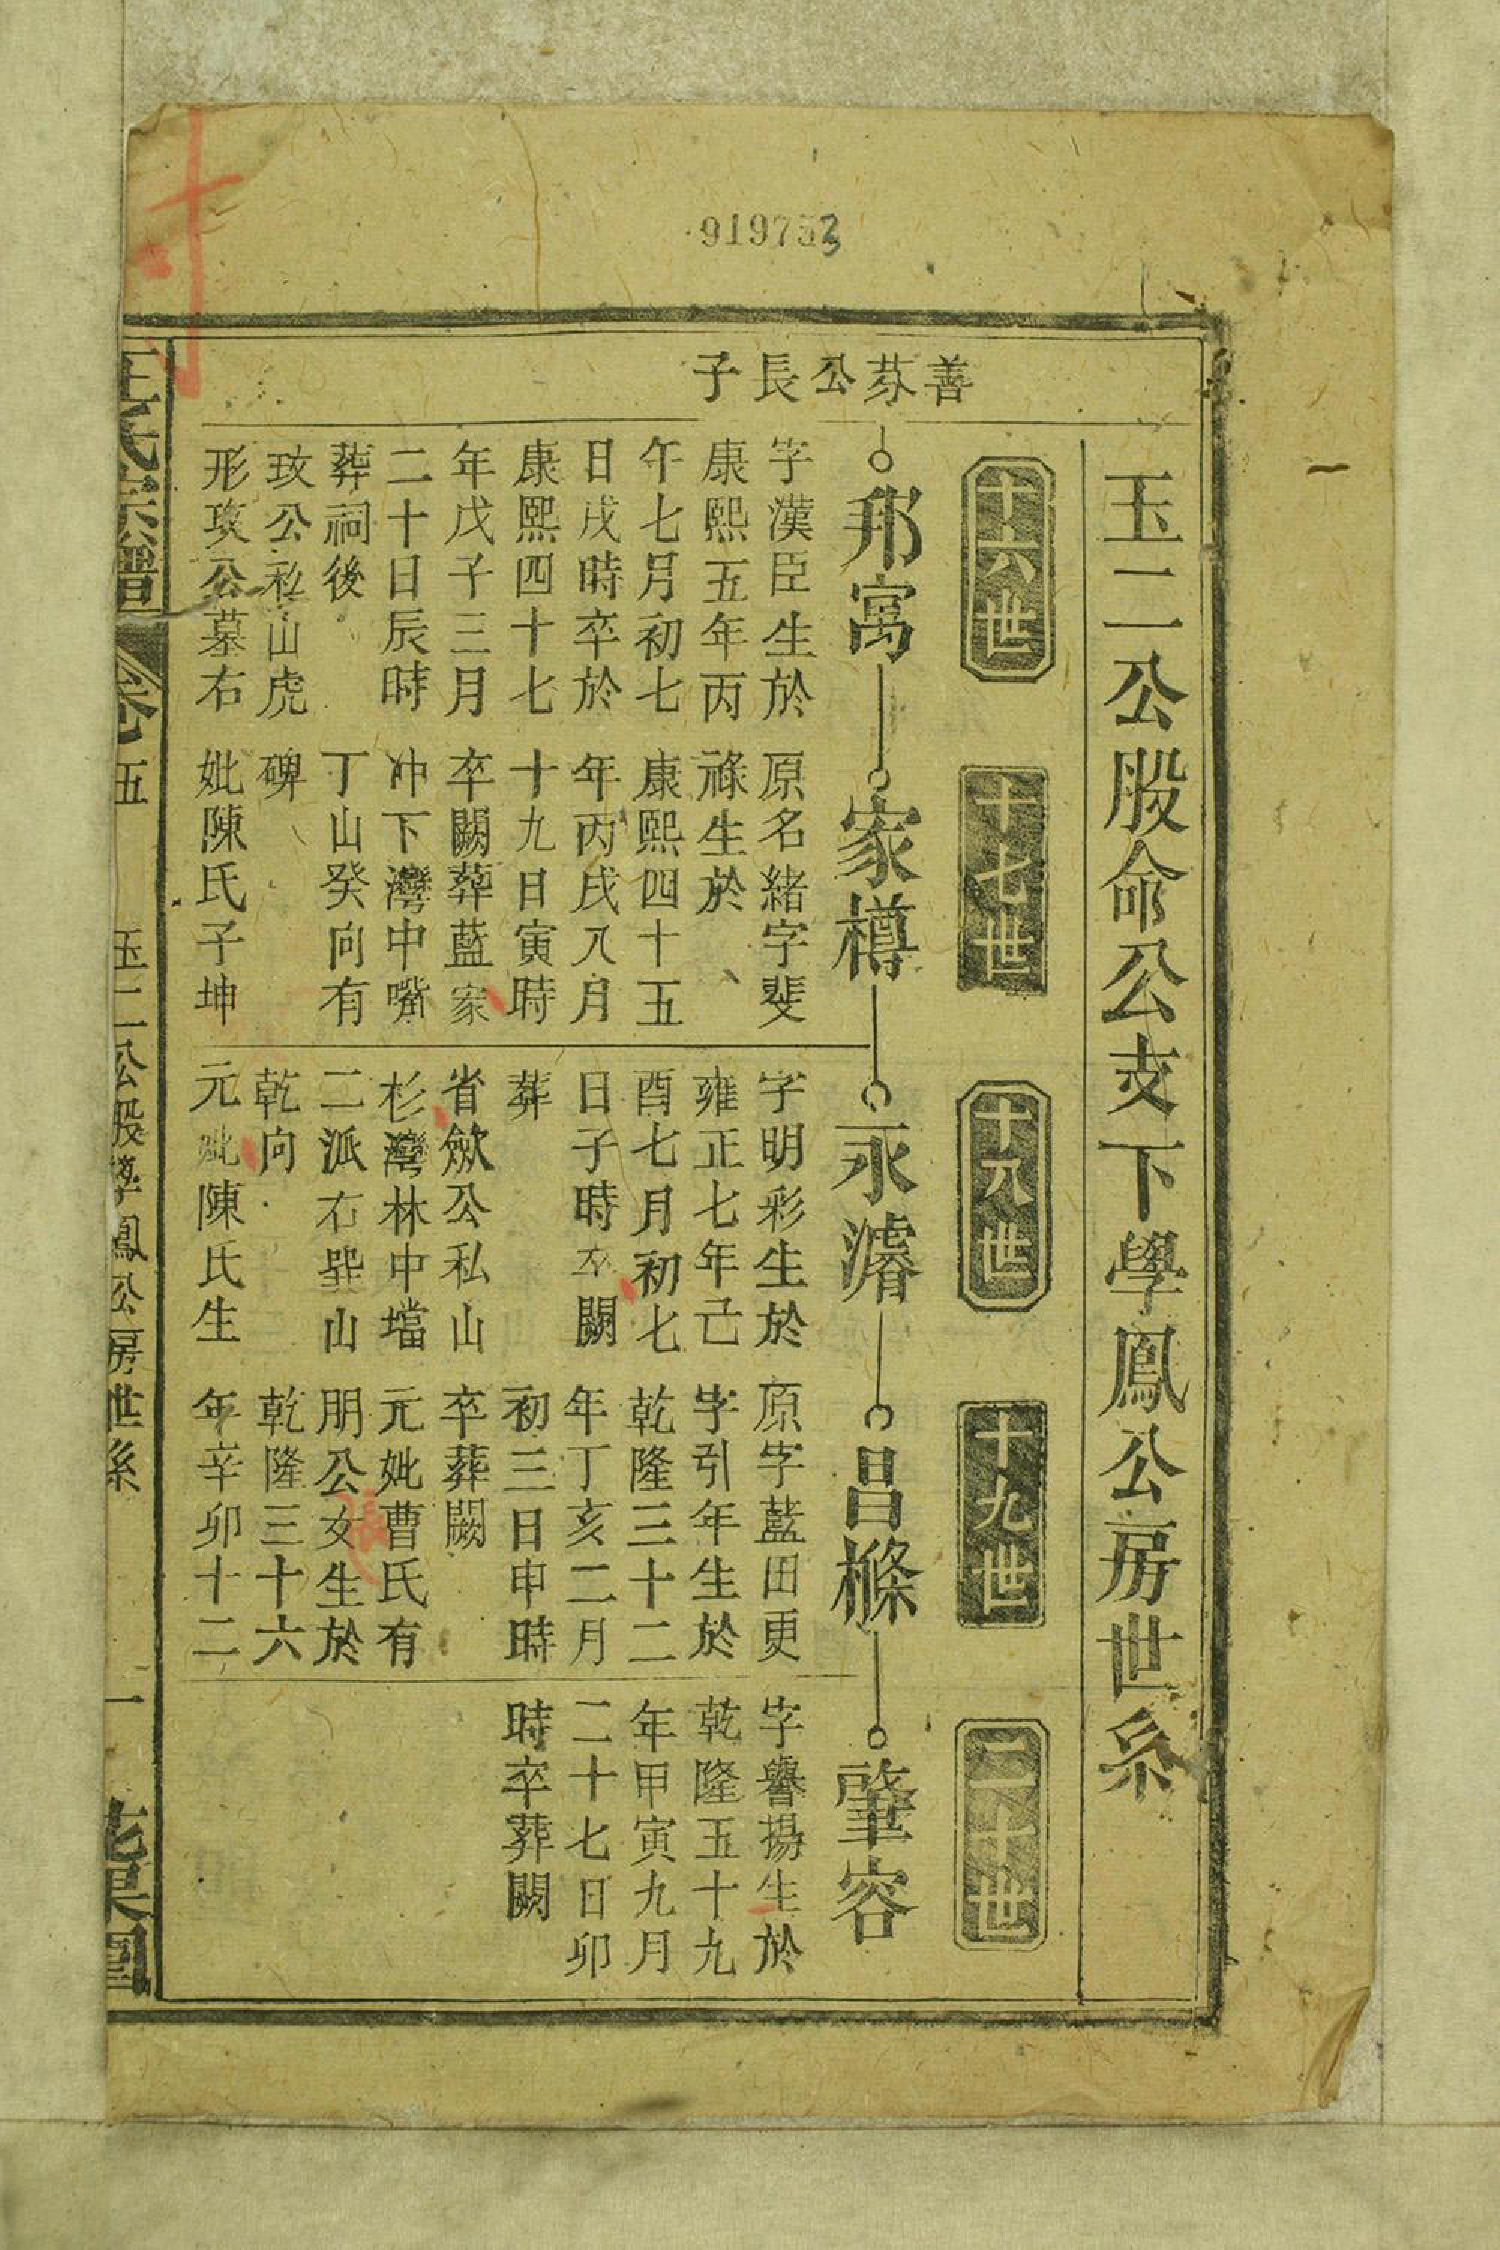 919753
玉二公股命公支下學鳳公房世系
十六世
十七世
十八世
十九世
二十世
善芬公長子
邦寓
字漢臣生於
康熙五年丙
午七月初七
日戌時卒於
康熙四十七
年戊子三月
二十日辰時
葬祠後
玫公私山虎
形攻公墓右
家樽
原名緒字斐
祿生於
康熙四十五
年丙戌八月
十九日寅時
卒闕葬藍家
冲下灣中嘴
丁山癸向有
碑
妣陳氏子坤
永濬
字明彩生於
雍正七年己
酉七月初七
日子時卒闕
葬
省歛公私山
杉灣林中壋
二派右巽山
乾向
元妣陳氏生
昌樤
原字藍田更
字引年生於
乾隆三十二
年丁亥二月
初三日申時
卒葬闕
元妣曹氏有
朋公女生於
乾隆三十六
年辛卯十二
肇容
字譽揚生於
乾隆五十九
年甲寅九月
二十七日卯
時卒葬闕
王氏宗譜
卷五
玉二公股學鳳公房世系
一